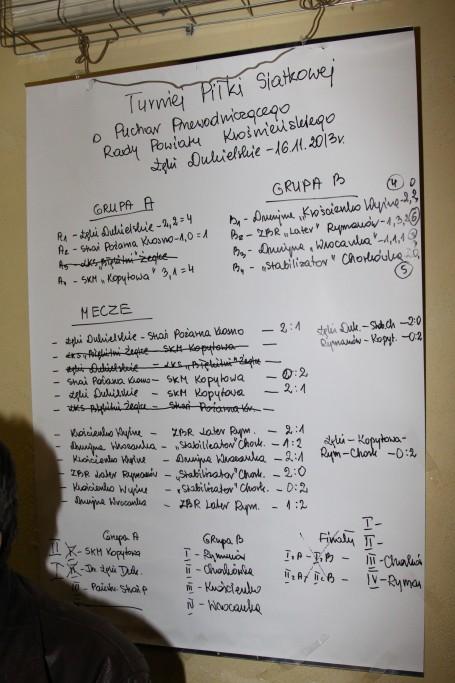 Turniej Piłki Siatkowej
o Puchar Przewodniczącego
Rady Powiatu Krośnieńskiego
Łęki Dukielskie - 16.11.2013r.
GRUPA A
A1 - Łęki Dukielskie - 2,2 = 4
A2 - Straż Pożarna Krosno - 1,0 = 1
A3 - LKS "Błękitni" Żeglce
A4 - SKM "Kopytowa" 3,1 = 4
GRUPA B
B1 - Drużyna "Krościenko Wyżne - 2,2,
B2 - ZBR "Later" Rymanów - 1,3,2 6
B3 - Drużyna "Wrocanka" - 1,1,1
B4 - "Stabilizator" Chorkówka
5
MECZE
- Łęki Dukielskie - Straż Pożarna Krosno - 2:1
- LKS "Błękitni Żeglce - SKM Kopytowa -
- Łęki Dukielskie - LKS "Błękitni" Żeglce -
- Straż Pożarna Krosno - SKM Kopytowa - 0:2
- Łęki Dukielskie - SKM Kopytowa - 2:1
- LKS Błękitni Żeglce - Straż Pożarna Kr. -
Łęki Duk. - Stab.Ch - 2:0
Rymanów - Kopyt. - 0:2
- Krościenko Wyżne - ZBR Later Rym. - 2:1
- Drużyna Wrocanka - "Stabilizator" Chork. - 1:2
- Krościenko Wyżne - Drużyna Wrocanka - 2:1
- ZBR Later Rymanów - "Stabilizator" Chork. - 2:0
- Krościenko Wyżne - "Stabilizator" Chork. - 0:2
- Drużyna Wrocanka - ZBR Later Rym. - 1:2
Łęki - Kopytowa -
Rym - Chork - 0:2
Grupa A
II - SKM Kopytowa
I - Łęki Duk.
III - Straż P
Grupa B
I - Rymanów
II - Chorkówka
III - Krościenko
IV - Wrocanka
Finały
I A - II B -
II A - I B -
I -
II -
III - Chorków
IV - Ryman